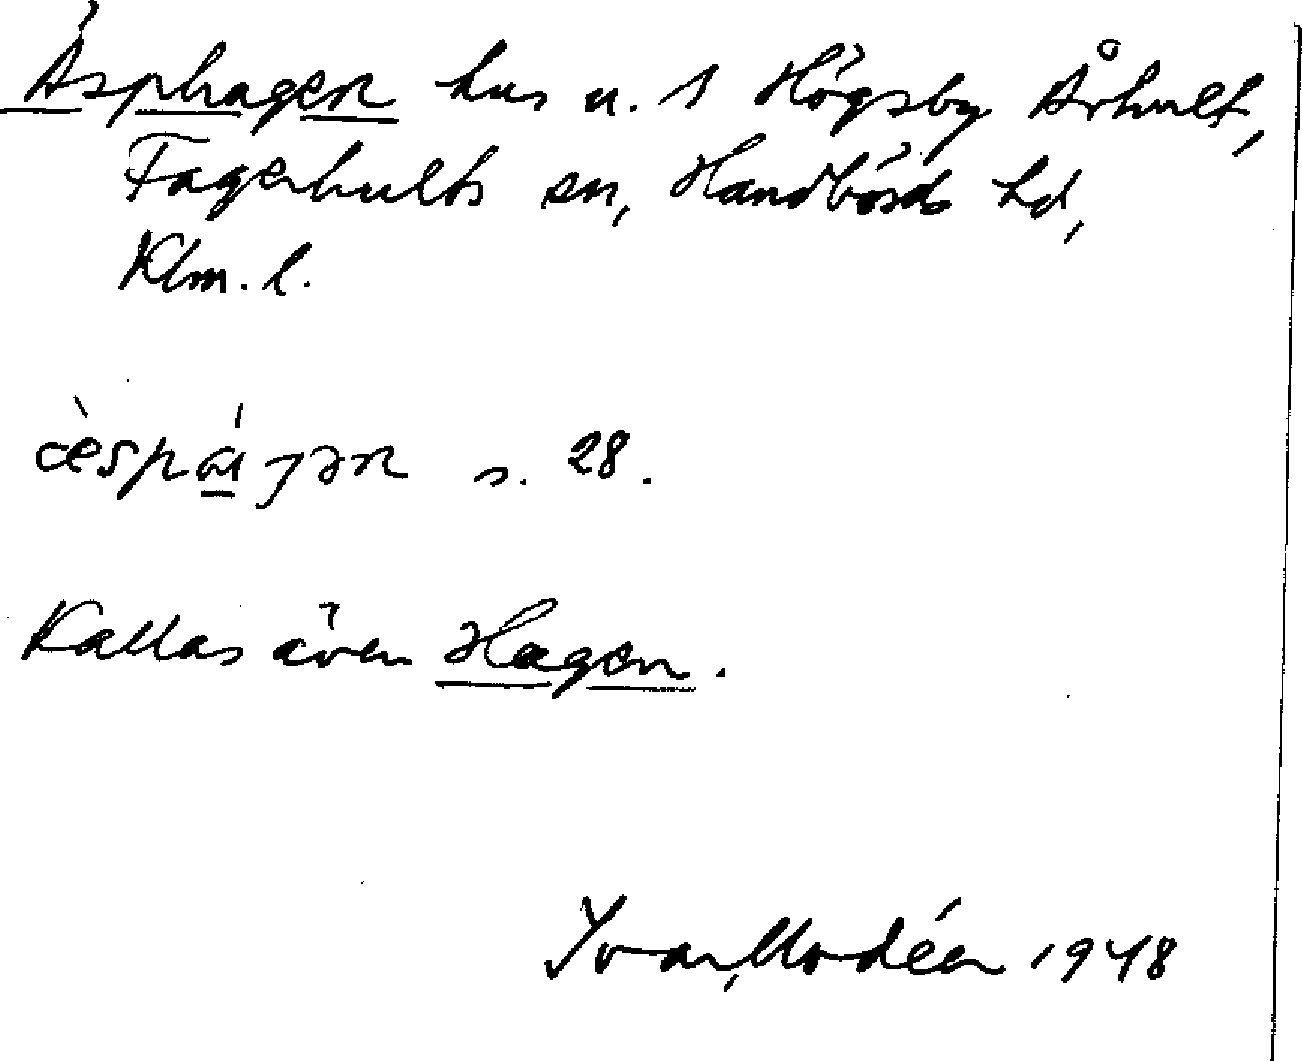 Äsphagen hus u. 1 Högsby Århult,
Fagerhults sn, Handbörds hd,
Klm. l.
s. 28.
Kallas även Hagen.
Ivar Modéer 1948